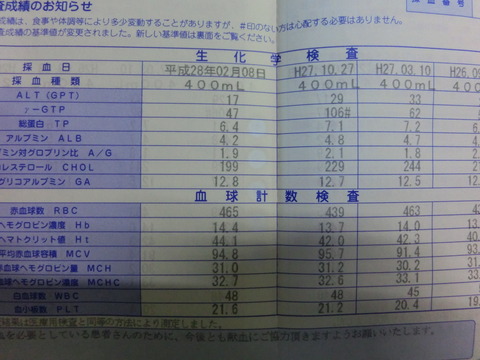 査成績のお知らせ
成績は、食事や体調等により多少変動することがありますが、#印のない方は心配する必要はありません。
査成績の基準値が変更されました。新しい基準値は裏面をご覧ください。
採血番号
生化学検査
採血日 平成28年02月08日 H27.10.27 H27.03.10 H26.09
採血種類 400mL 400mL 400mL 4
ALT(GPT) 17 29 33
γ-GTP 47 106# 62
総蛋白 TP 6.4 7.1 7.2 6.
アルブミン ALB 4.2 4.8 4.7 4.
ブミン対グロブリン比 A/G 1.9 2.1 1.8 2.
レステロール CHOL 199 229 244 2
グリコアルブミン GA 12.8 12.7 12.5 12.
血球計数検査
赤血球数 RBC 465 439 463 4
ヘモグロビン濃度 Hb 14.4 13.7 14.0 13.
ヘマトクリット値 Ht 44.1 42.0 42.3 40.
平均赤血球容積 MCV 94.8 95.7 91.4 93.
赤血球ヘモグロビン量 MCH 31.0 31.2 30.2 31.
血球ヘモグロビン濃度 MCHC 32.7 32.6 33.1 33.
白血球数 WBC 48 48 45
血小板数 PLT 21.6 21.2 20.4 19.
結果は医療用検査と同等の方法により測定しました。
を必要としている患者さんのために、今後とも献血にご協力頂きますようお願いいたします。